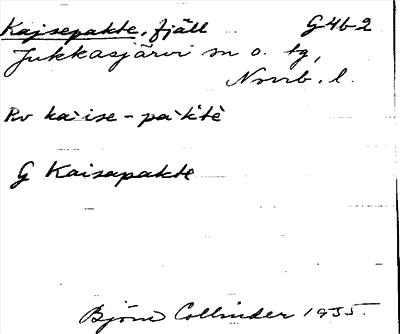 Kajsepakte, fjäll G4b2
Jukkasjärvi sn o. tg,
Norrb. l.
Rv ka·ise-pa·kˈtè
G Kaisapakte
Björn Collinder 1935.